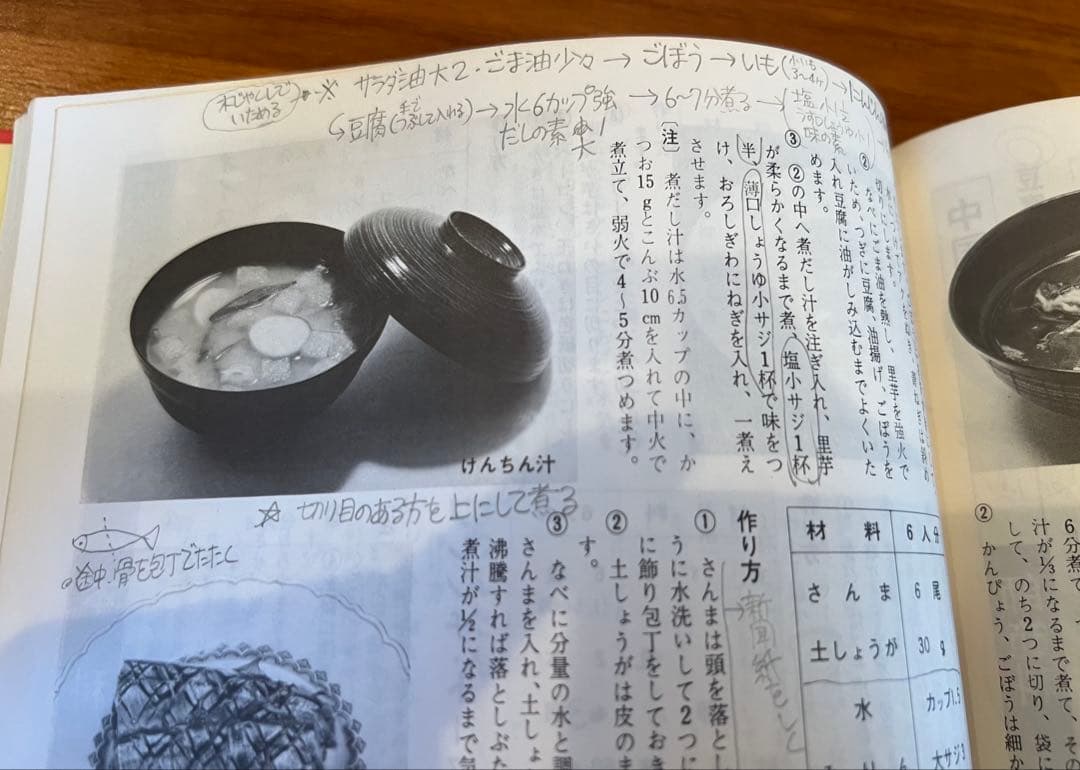 木じゃくしで
いためる
※ サラダ油大2・ごま油少々→ごぼう→いも(小いも3〜4ケ)→にんじん
豆腐(つぶして入れる)→水6カップ強→6〜7分煮る→
だしの素大1
②なべにごま油を熱し、里芋を強火で
いため、つぎに豆腐、油揚げ、ごぼうを
入れ豆腐に油がしみ込むまでよくいた
めます。
③②の中へ煮だし汁を注ぎ入れ、里芋
が柔らかくなるまで煮、塩小サジ1杯
半、薄口しょうゆ小サジ1杯で味をつ
け、おろしぎわにねぎを入れ、一煮え
させます。
〔注〕煮だし汁は水6.5カップの中に、か
つお15gとこんぶ10cmを入れて中火で
煮立て、弱火で4〜5分煮つめます。
けんちん汁
☆ 切り目のある方を上にして煮る
途中、骨を包丁でたたく
材料 6人分
さんま 6尾
土しょうが 30g
水 カップ1.5
大サジ3
作り方
① さんまは頭を落とし
うに水洗いして2つに
に飾り包丁をしておき
② 土しょうがは皮のま
す。
③ なべに分量の水と調
さんまを入れ、土しょ
沸騰すれば落としぶた
煮汁が1/2になるまで気
新聞紙をしく
6分煮て
汁が1/3になるまで煮て、その
して、のち2つに切り、袋に
② かんぴょう、ごぼうは細か